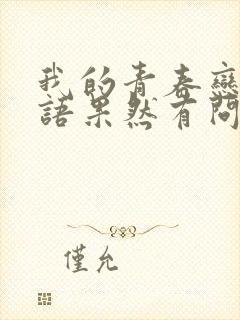 我的青春戀
語果然有問
僅允